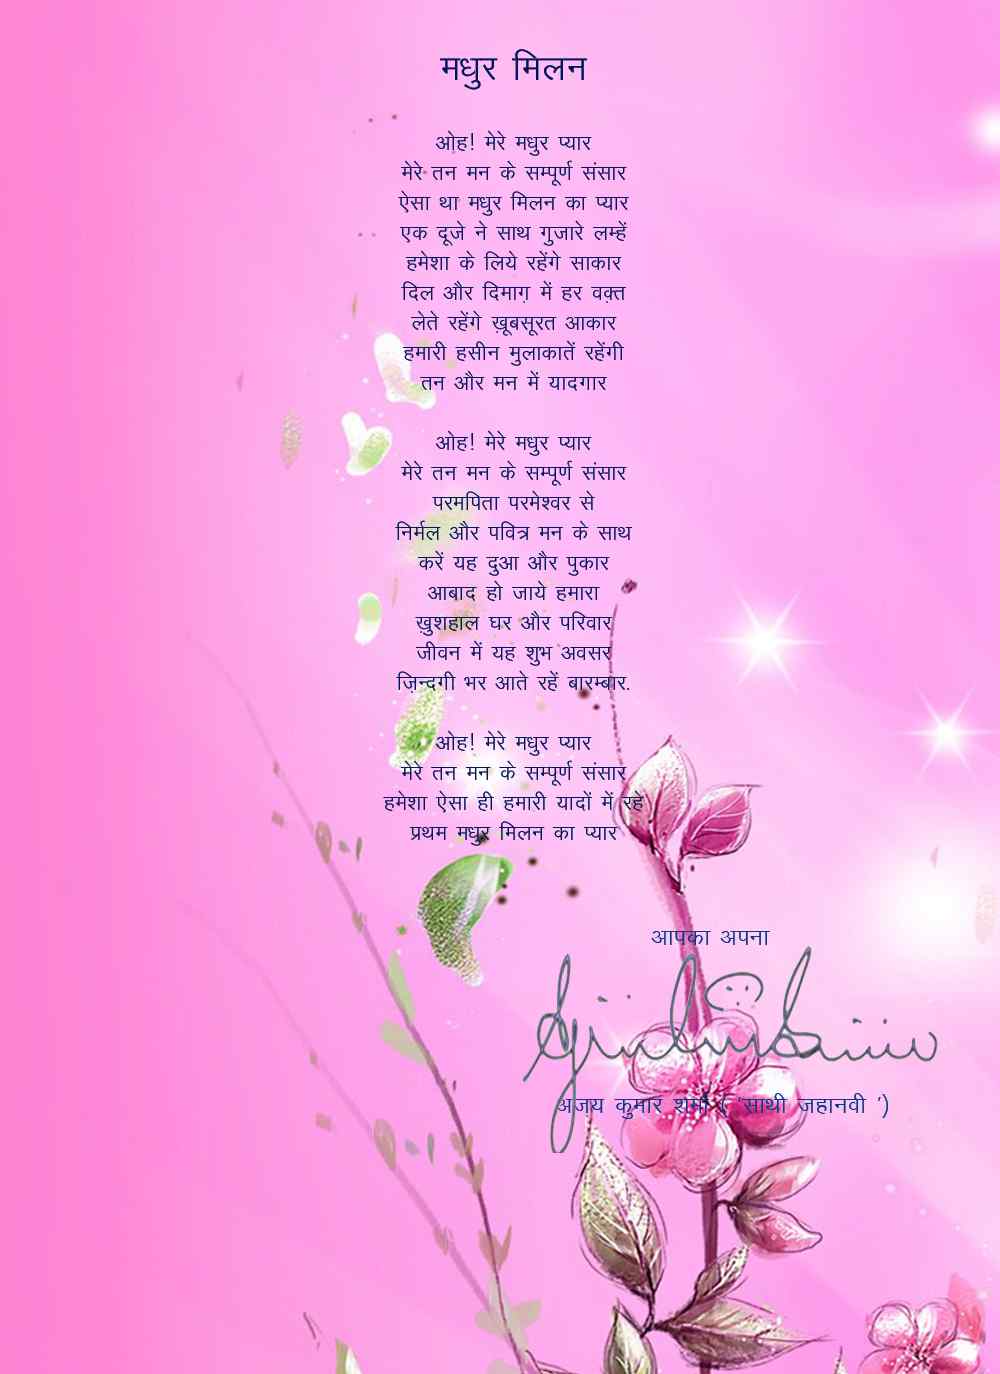 मधुर मिलन
ओह! मेरे मधुर प्यार
मेरे तन मन के सम्पूर्ण संसार
ऐसा था मधुर मिलन का प्यार
एक दूजे ने साथ गुजारे लम्हें
हमेशा के लिये रहेंगे साकार
दिल और दिमाग़ में हर वक़्त
लेते रहेंगे ख़ूबसूरत आकार
हमारी हसीन मुलाकातें रहेंगी
तन और मन में यादगार
ओह! मेरे मधुर प्यार
मेरे तन मन के सम्पूर्ण संसार
परमपिता परमेश्वर से
निर्मल और पवित्र मन के साथ
करें यह दुआ और पुकार
आबाद हो जाये हमारा
ख़ुशहाल घर और परिवार
जीवन में यह शुभ अवसर
ज़िन्दगी भर आते रहें बारम्बार.
ओह! मेरे मधुर प्यार
मेरे तन मन के सम्पूर्ण संसार
हमेशा ऐसा ही हमारी यादों में रहे
प्रथम मधुर मिलन का प्यार
आपका अपना
अजय कुमार शर्मा ( 'साथी जहानवी ')